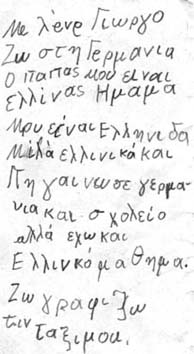 Με λένε Γιωργο
Ζω στη Γερμανια
Ο παπας μου ειναι
Ελλινας Η μαμα
Μου είναι Ελληνιδα
Μιλά ελλινικά και
Πηγαινω σε γερμα-
νια και σχολείο
αλλά εχω και
Ελλινκό μαθημα.
Ζωγραφιζω
τιν
ταξιμου.